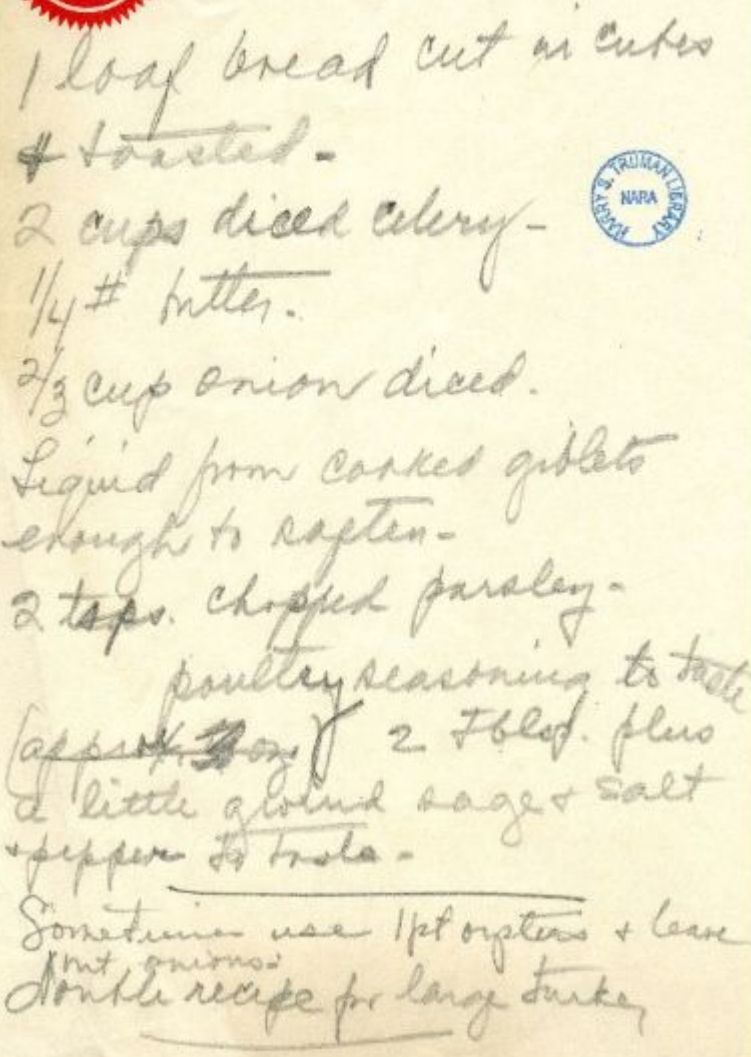 1 loaf bread cut in cubes
& toasted -
HARRY S. TRUMAN LIBRARY
NARA
2 cups diced celery -
1/4 # butter.
2/3 cup onion diced.
Liquid from cooked giblets
enough to soften -
2 tsps. chopped parsley -
poultry seasoning to taste
(approx. oz) 2 Tbls. plus
a little ground sage & salt
& pepper to taste -
Sometimes use 1 pt oysters & leave
out onions.
Double recipe for large turkey